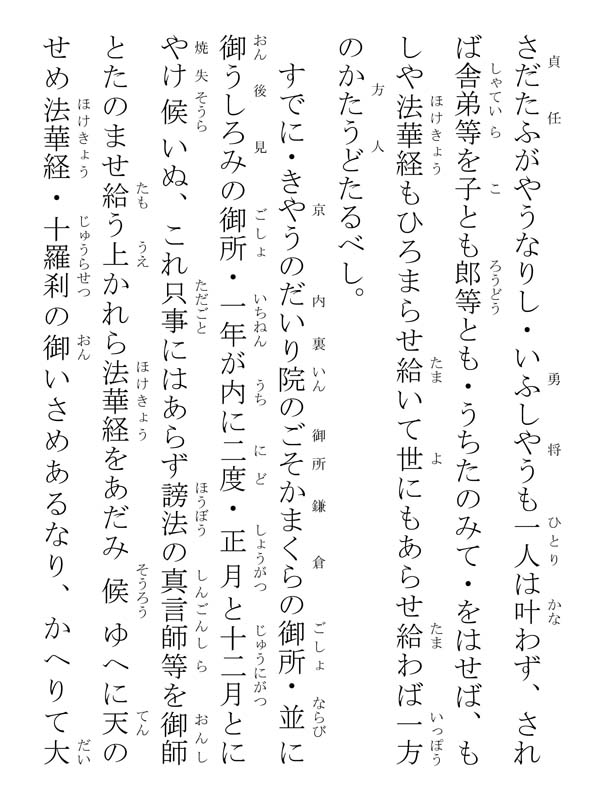 さだたふがやうなりし・いふしやうも一人は叶わず、され
ば舎弟等を子とも郎等とも・うちたのみて・をはせば、も
しや法華経もひろまらせ給いて世にもあらせ給わば一方
のかたうどたるべし。
すでに・きやうのだいり院のごそかまくらの御所・並に
御うしろみの御所・一年が内に二度・正月と十二月とに
やけ候いぬ、これ只事にはあらず謗法の真言師等を御師
とたのませ給う上かれら法華経をあだみ候ゆへに天の
せめ法華経・十羅刹の御いさめあるなり、かへりて大